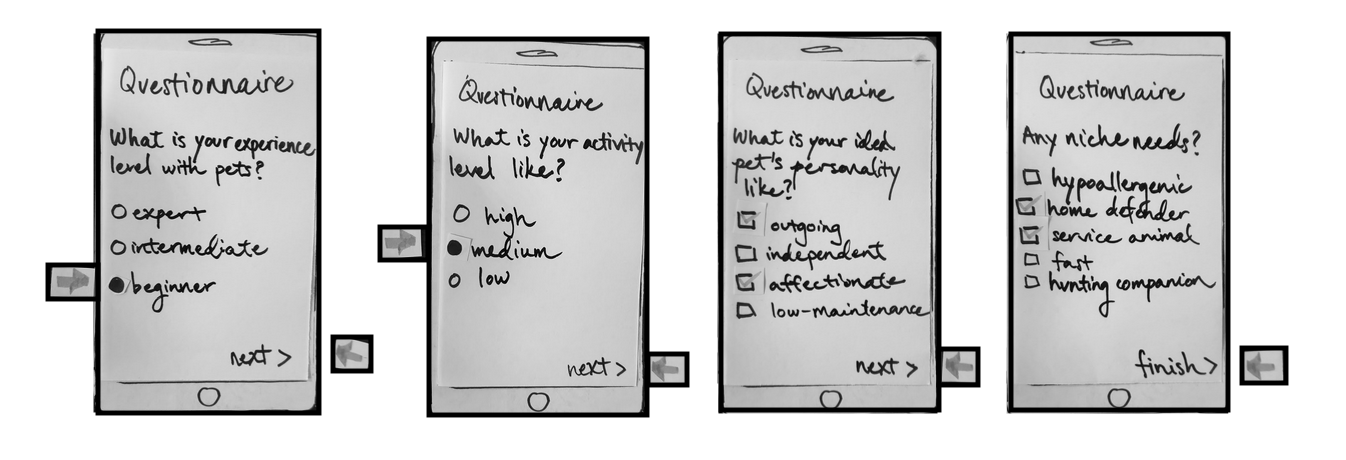 Questionnaire
What is your experience
level with pets?
expert
intermediate
beginner
next >
Questionnaire
What is your activity
level like?
high
medium
low
next >
Questionnaire
What is your ideal
pet's personality
like?
outgoing
independent
affectionate
low-maintenance
next >
Questionnaire
Any niche needs?
hypoallergenic
home defender
service animal
fast
hunting companion
finish >